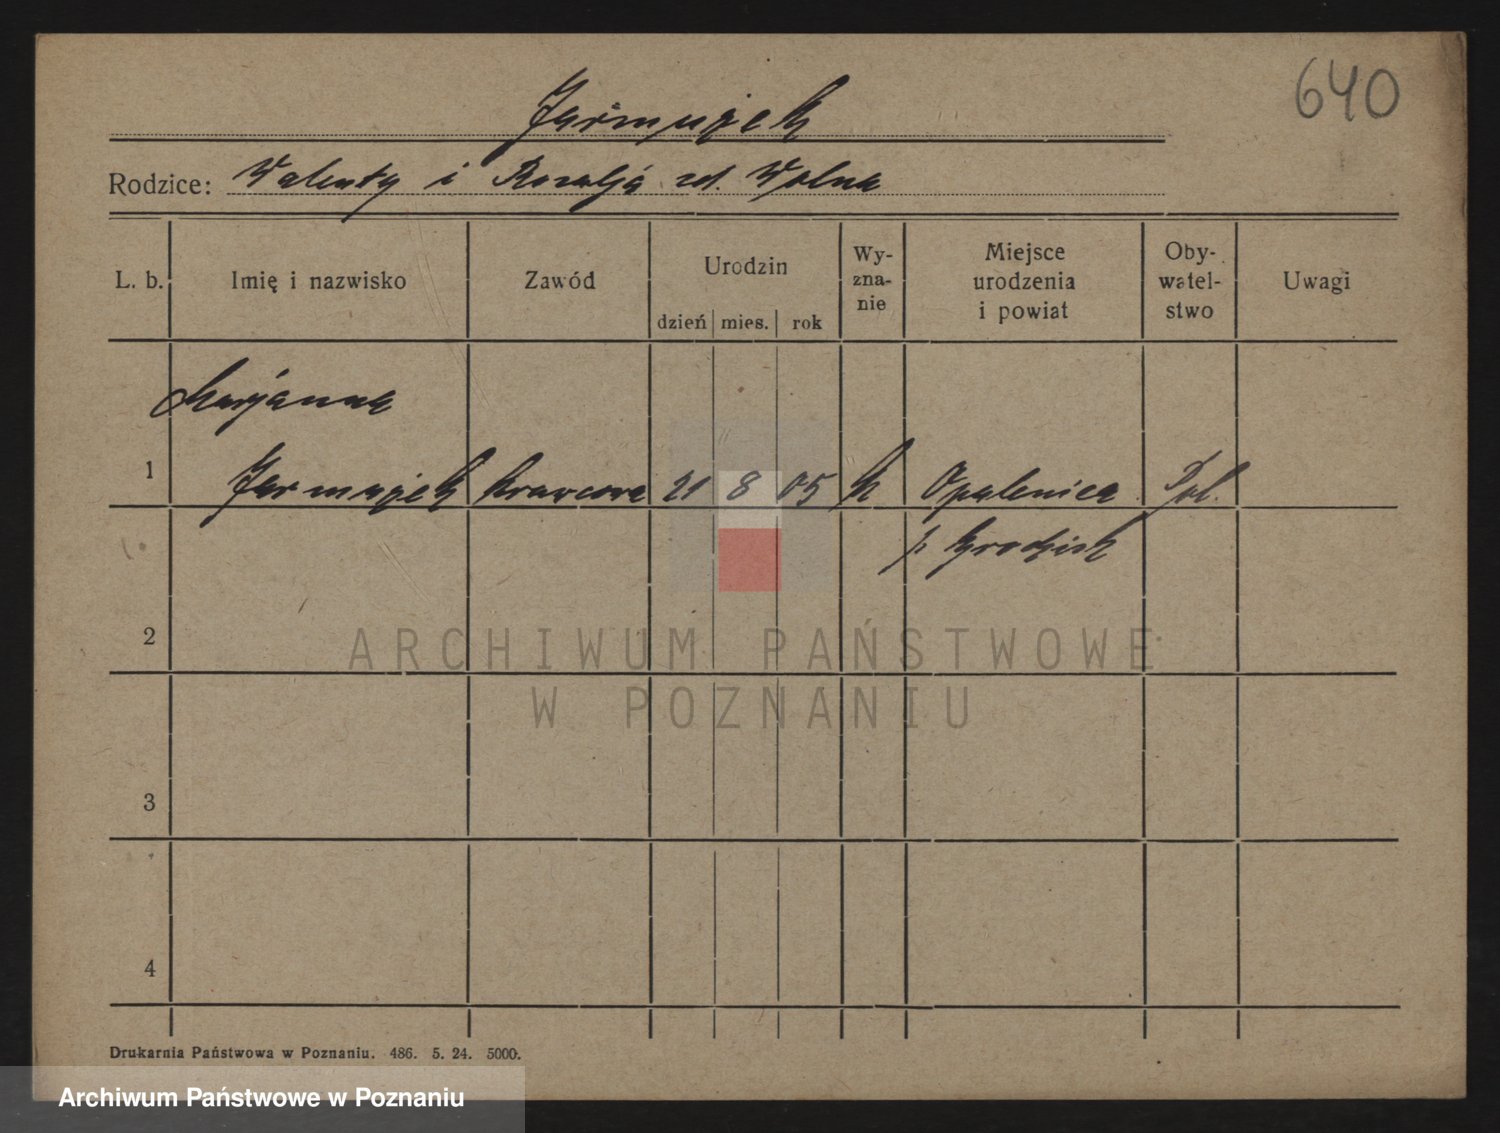 640
Jarmużek
Rodzice: Walenty i Rozalja zd. Wolna
L. b. Imię i nazwisko Zawód Urodzin dzień mies. rok Wy-zna-nie Miejsce urodzenia i powiat Oby-watel-stwo Uwagi
Marjanna
1 Jarmużek krawcowa 21 8 05 k Opalenica Pol.
p. Grodzisk
2
ARCHIWUM PAŃSTWOWE
W POZNANIU
3
4
Drukarnia Państwowa w Poznaniu. 486. 5. 24. 5000.
Archiwum Państwowe w Poznaniu